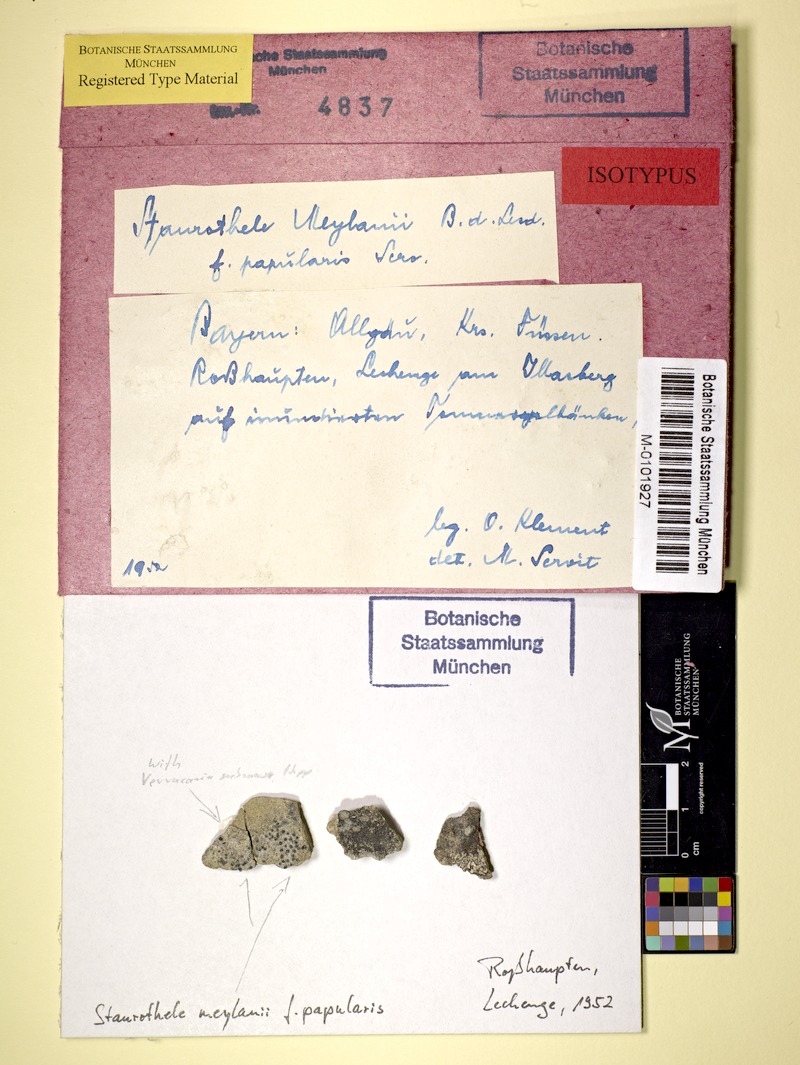 BOTANISCHE STAATSSAMMLUNG
MÜNCHEN
Registered Type Material
che Staatssammlung
München
4837
Botanische
Staatssammlung
München
ISOTYPUS
Staurothele Meylanii B.d.Lesd.
f. papularis Serv.
Bayern: Allgäu, Krs. Füssen.
Roßhaupten, Lechenge am Illasberg
auf inundierten
leg. O. Klement
det. M. Servit
1952
Botanische Staatssammlung München
M-0101927
Botanische
Staatssammlung
München
BOTANISCHE
STAATSSAMMLUNG
MÜNCHEN
M
copyright reserved
0 1 2
cm
with
Verrucaria
Staurothele meylanii f. papularis
Roßhaupten,
Lechenge, 1952